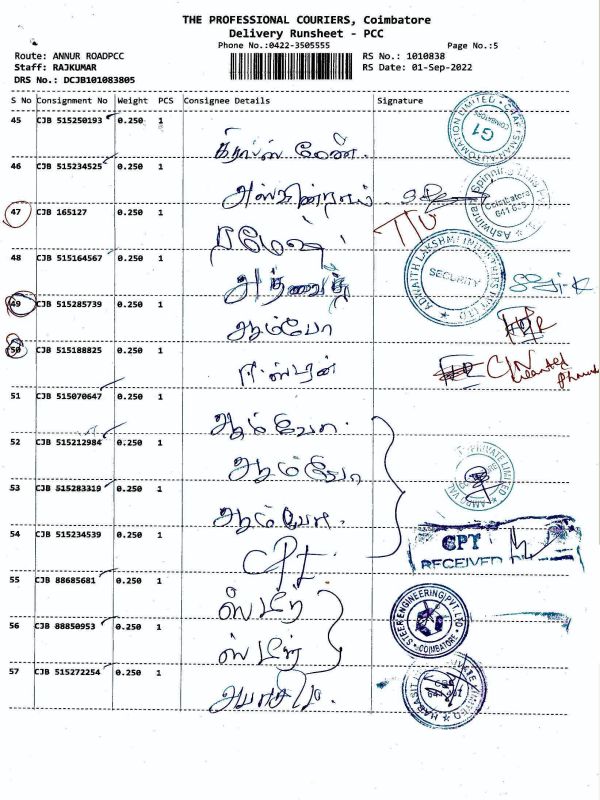 THE PROFESSIONAL COURIERS, Coimbatore
Delivery Runsheet - PCC
Phone No.:0422-3505555 Page No.:5
Route: ANNUR ROADPCC RS No.: 1010838
Staff: RAJKUMAR RS Date: 01-Sep-2022
DRS No.: DCJB101083805
S No Consignment No Weight PCS Consignee Details Signature
45 CJB 515250193 0.250 1
G1
COIMBATORE
46 CJB 515234525 0.250 1
Ashwinraj Spinning
Coimbatore
47 CJB 165127 0.250 1 ரமேஷ்
48 CJB 515164567 0.250 1
ADWAITH LAKSHMI INDUSTRIES PVT LTD
SECURITY
49 CJB 515285739 0.250 1 ஆம்போ
50 CJB 515188825 0.250 1 ஈஸ்வரன்
51 CJB 515070647 0.250 1 ஆம்போ
52 CJB 515212984 0.250 1 ஆம்போ
PRIVATE LIMITED
53 CJB 515283319 0.250 1 ஆம்போ
54 CJB 515234539 0.250 1 CPT
CPT
RECEIVED
55 CJB 88685681 0.250 1 ஸ்டீர்
STEER ENGINEERING PVT. LTD
COIMBATORE
56 CJB 88850953 0.250 1 ஸ்டீர்
57 CJB 515272254 0.250 1
HABASIT
PRIVATE LIMITED